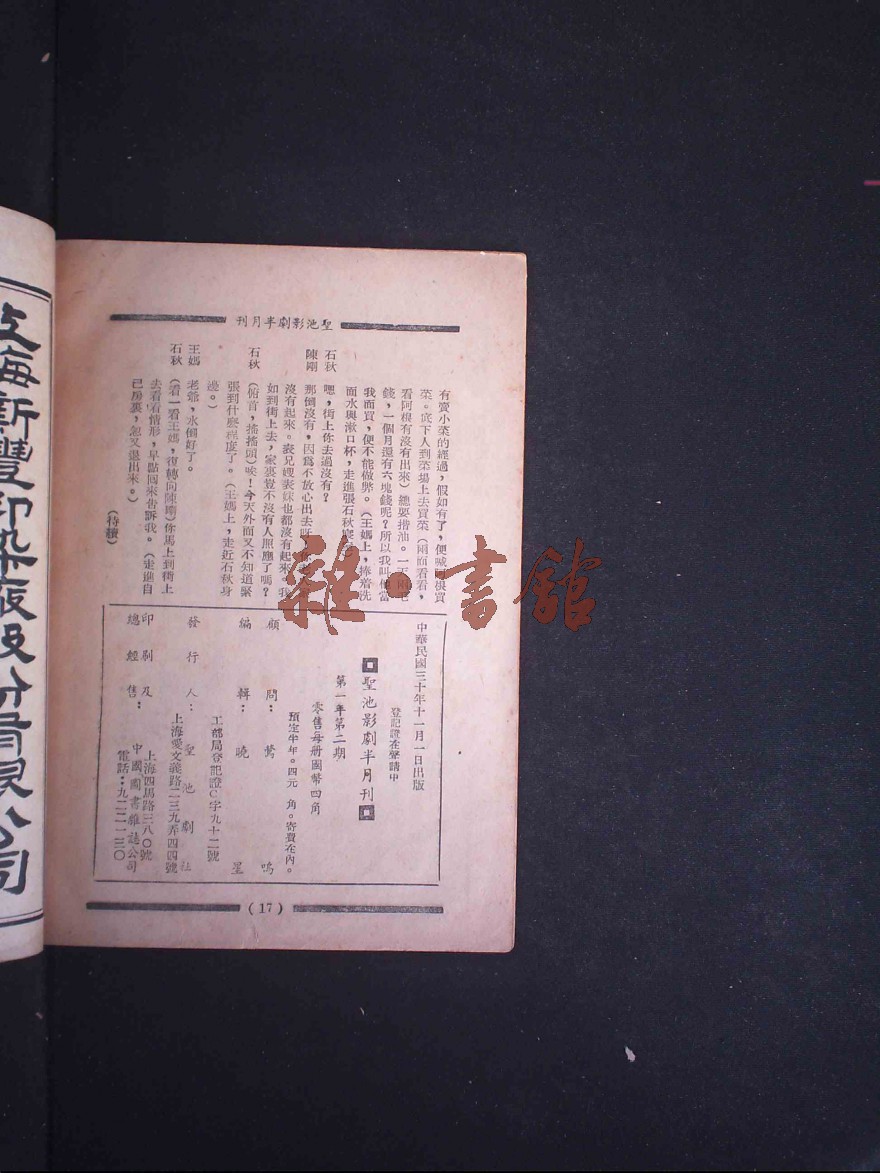 聖池影劇半月刊
有賣小菜的經過，假如有了，便喊阿根買
菜。底下人到菜場上去買菜（兩面看看，
看阿根有沒有出來）總要揩油。一天兩毛
錢，一個月還有六塊錢呢？所以我叫他當
我面買，便不能做弊。（王媽上，捧着洗
面水與漱口杯，走進張石秋寢
石秋 嗯，街上你去過沒有？
陳剛 那倒沒有，因爲不放心出去
沒有起來。表兄嫂表妹也都沒有起來，我
如到街上去，家裏豈不沒有人照應了嗎？
石秋 （俯首，搖搖頭）唉！今天外面又不知道緊
張到什麽程度了。（王媽上，走近石秋身
邊。）
王媽 老爺，水倒好了。
石秋 （看一看王媽，復轉向陳剛）你馬上到街上
去看看情形，早點回來告訴我。（走進自
己房裏，忽又退出來。）
（待續）
中華民國三十年十一月一日出版
登記證在聲請中
聖池影劇半月刊
第一年第二期
零售每册國幣四角
預定半年。四元 角。寄費在內。
顧問：鶯 鳴
編輯：曉 星
工部局登記證C字九十二號
發行人：聖池劇社
上海愛文義路二三九弄四四號
印刷及
總經售：
上海四馬路三八〇號
中國圖書雜誌公司
電話：九二二一三〇
（17）
上海新豐印染廠股份有限公司
雜·書館